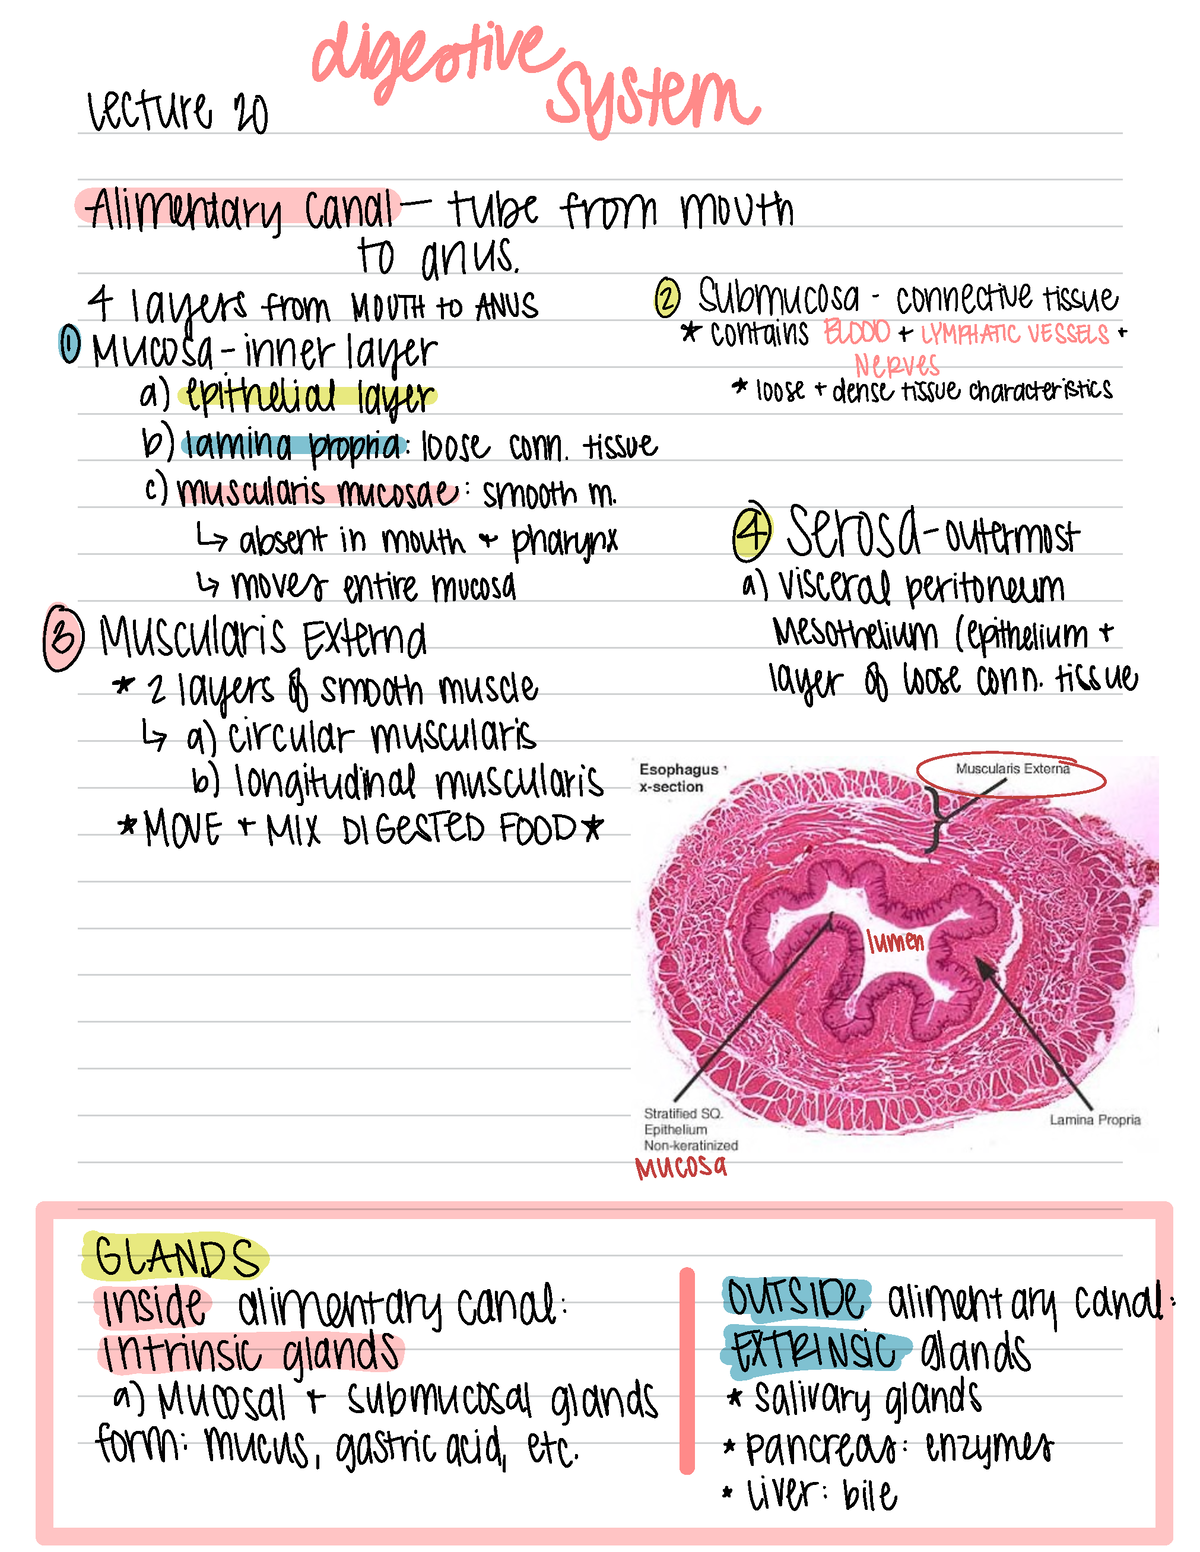 digestive
system
Lecture 20
Alimentary canal — tube from mouth
to anus.
4 layers from MOUTH to ANUS
① Mucosa - inner layer
a) epithelial layer
b) lamina propria: loose conn. tissue
c) muscularis mucosae: smooth m.
↳ absent in mouth + pharynx
↳ moves entire mucosa
② Submucosa - connective tissue
* contains BLOOD + LYMPHATIC VESSELS +
NERVES
* loose + dense tissue characteristics
③ Muscularis Externa
* 2 layers of smooth muscle
↳ a) circular muscularis
b) longitudinal muscularis
* MOVE + MIX DIGESTED FOOD *
④ Serosa - outermost
a) visceral peritoneum
Mesothelium (epithelium +
layer of loose conn. tissue
Esophagus
x-section
Muscularis Externa
lumen
Stratified SQ.
Epithelium
Non-keratinized
Mucosa
Lamina Propria
GLANDS
inside alimentary canal:
intrinsic glands
a) Mucosal + submucosal glands
form: mucus, gastric acid, etc.
OUTSIDE alimentary canal:
EXTRINSIC glands
* salivary glands
* pancreas: enzymes
* liver: bile